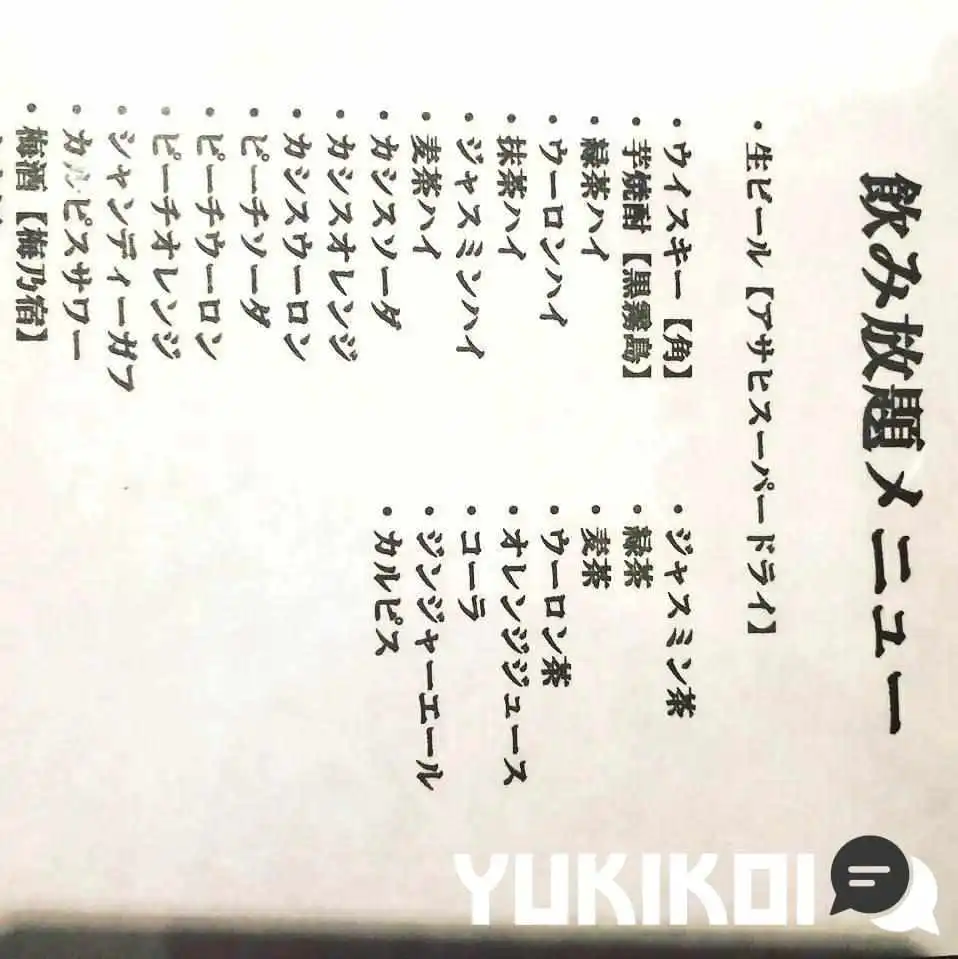 飲み放題メニュー
・生ビール【アサヒスーパードライ】
・ウイスキー【角】
・芋焼酎【黒霧島】
・緑茶ハイ
・ウーロンハイ
・抹茶ハイ
・ジャスミンハイ
・麦茶ハイ
・カシスソーダ
・カシスオレンジ
・カシスウーロン
・ピーチソーダ
・ピーチウーロン
・ピーチオレンジ
・シャンディーガフ
・カルピスサワー
・梅酒【梅乃宿】
・ジャスミン茶
・緑茶
・麦茶
・ウーロン茶
・オレンジジュース
・コーラ
・ジンジャーエール
・カルピス
YUKIKOI